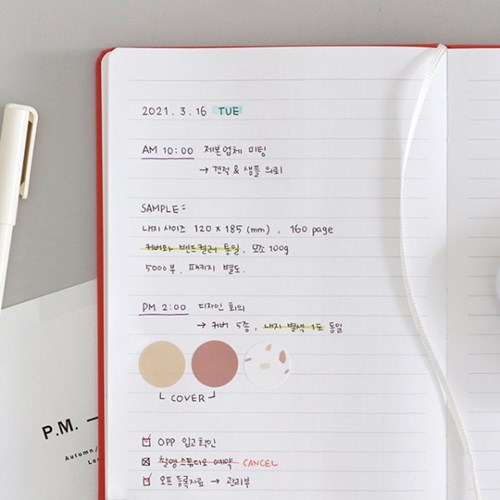 2021. 3. 16 TUE
AM 10:00 제본업체 미팅
→ 견적 & 샘플 의뢰
SAMPLE:
내지 사이즈 120 x 185 (mm), 160 page
커버와 밴드컬러 통일, 모조 100g
5000부, 패키지 별도.
PM 2:00 디자인 회의
→ 커버 5종, 내지 별색 1도 동일
COVER
OPP 입고확인
촬영스튜디오 예약 CANCEL
오프 등록자료 → 관리부
P.M. —
Autumn/
Lo